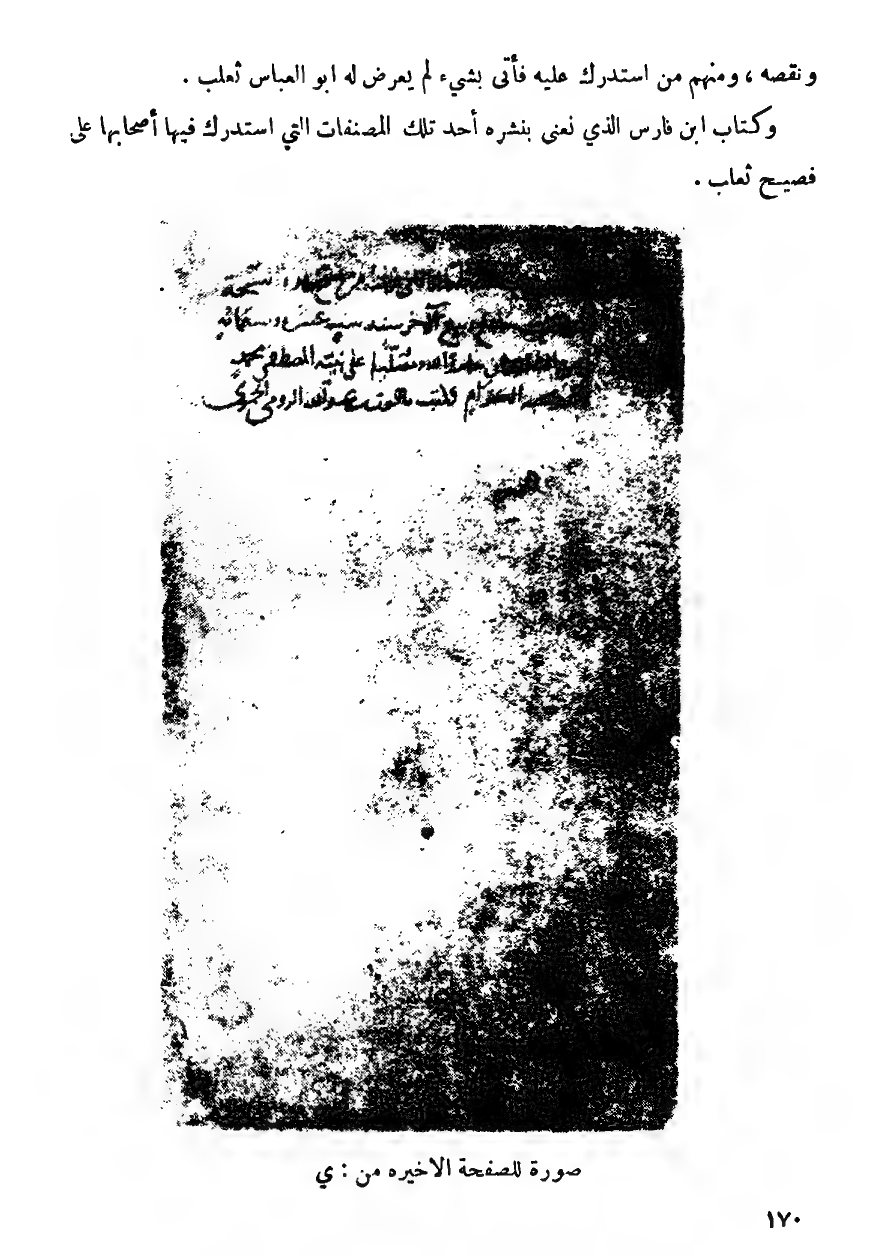 ونقصه ، ومنهم من استدرك عليه فأتى بشيء لم يعرض له ابو العباس ثعلب .
وكتاب ابن فارس الذي نعنى بنشره أحد تلك المصنفات التي استدرك فيها أصحابها على
فصيح ثعلب .
نسخته
ربيع الآخر سنة ست عشرة وستمائة
على نبيه المصطفى محمد
الكرام كتب ياقوت بن عبد الله الرومي الحموي
صورة للصفحة الاخيره من : ي
١٧٠